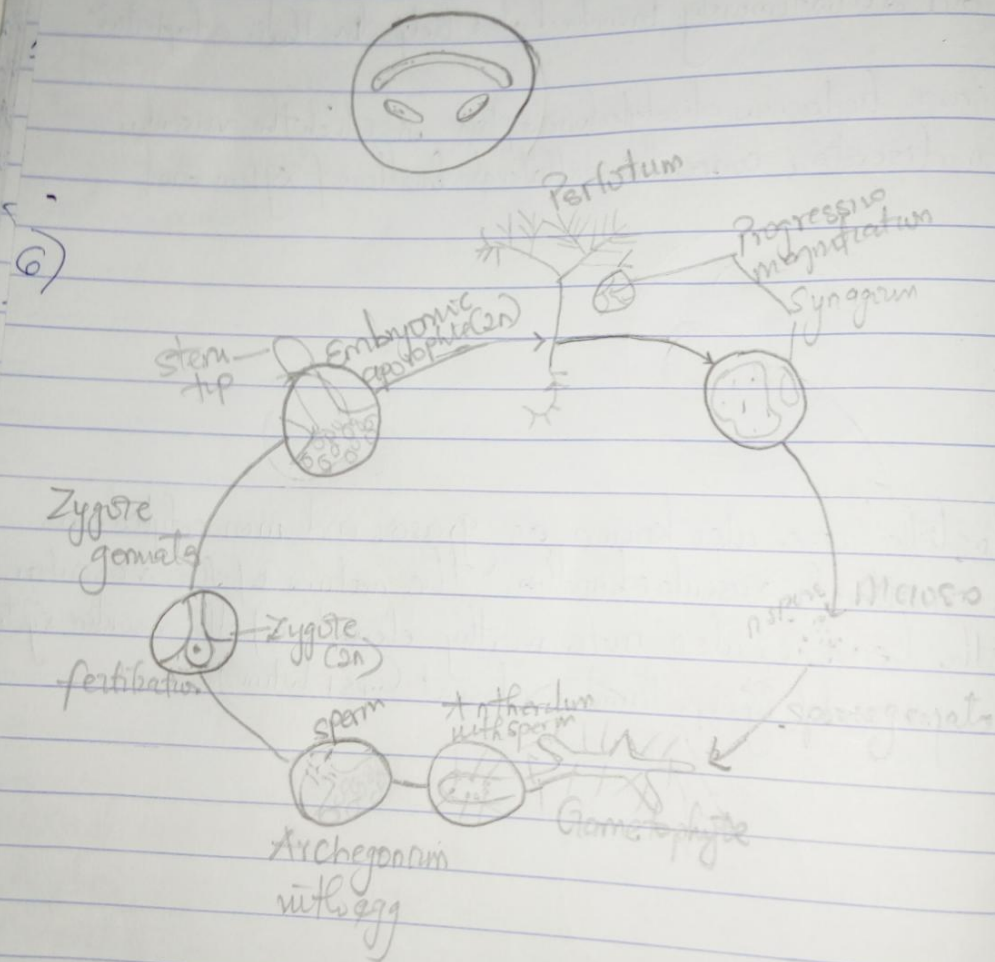 6)
Psilotum
Progressive
magnification
Synggium
stem
tip
Embryonic
sporophyte(2n)
Zygote
germate
Zygote
(2n)
fertilization
n spore
Meioso
sperm
Antheridium
with sperm
Gametophyte
Archegonium
with egg